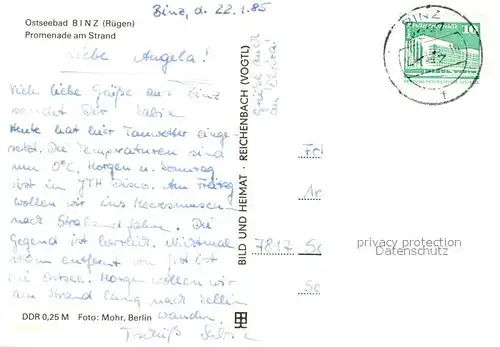 Ostseebad BINZ (Rügen)
Promenade am Strand
Binz, d. 22.1.85
Liebe Angela!
Viele liebe Grüße aus Binz
sendet Dir Sabie
Heute hat hier Tauwetter einge-
setzt. Die Temperaturen sind
um 0°C. Morgen u. Sonntag
ist in JTH Disco. Am Freitag
wollen wir ins Meeresmuseum
nach Stralsund fahren. Die
Gegend ist herrlich. Nicht mal
entfernt von ist
die Ostsee. Morgen wollen wir
am Strand lang nach Sellin
wandern.
Tschüß Sabie
Grüße auch
an
DDR 0,25 M Foto: Mohr, Berlin
BILD UND HEIMAT · REICHENBACH (VOGTL)
BINZ
10
7817
privacy protection
Datenschutz